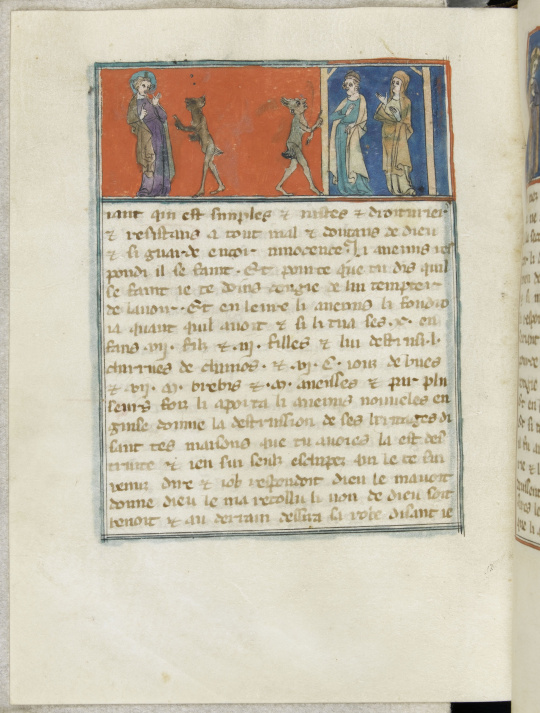 iant qui est simples & iustes & droituriers
& resistans a tout mal & doutans de dieu
& si guarde encor innocence. Li anemis res
pondi il se faint. Et pour ce que tu dis quil
se faint ie te doins congie de lui tempter
de lavoir. Et en leure li anemis li fondro
ia quant quil avoit & si li tua ses .x. en
fans .vii. filz & .iii. filles & lui destruist .l.
charrues de chamos. & .vi. C. iouz de bues
& .vii. M. brebis & .v. anesses & par plu
seurs foiz li aporta li anemis nouveles en
guise domme la destrussion de ses hiritages di
sant tes maisons que tu avoies la est des
truite & ien sui seulz eschapez qui le te sui
venuz dire & iob respondoit dieu le mavoit
donne dieu le ma tossu li non de dieu soit
benoit & au derrain dessira sa robe disant ie